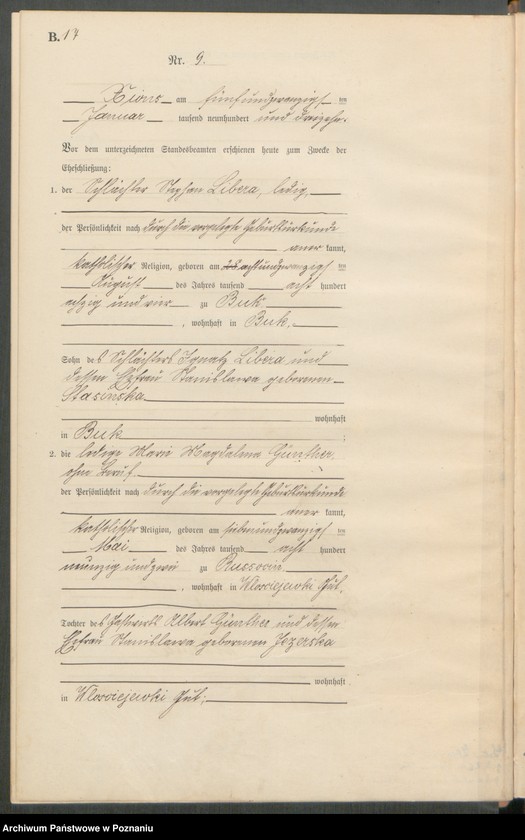 B. 17
Nr. 9.
Xions am fünfundzwanzigs ten
Januar tausend neunhundert und dreizehn.
Vor dem unterzeichneten Standesbeamten erschienen heute zum Zwecke der
Eheschließung:
1. der Schlächter Stephan Libera, ledig,
der Persönlichkeit nach durch die vorgelegte Geburtsurkunde
aner kannt,
katholischer Religion, geboren am achtundzwanzigs ten
August des Jahres tausend acht hundert
achzig und vier zu Buk
, wohnhaft in Buk,
Sohn des Schlächters Ignatz Libera und
dessen Ehefrau Stanislawa geborenen
Stasinska
wohnhaft
in Buk ;
2. die ledige Marie Magdalena Günther,
ohne Beruf
der Persönlichkeit nach durch die vorgelegte Geburtsurkunde
aner kannt,
katholischer Religion, geboren am siebenundzwanzigs ten
Mai des Jahres tausend acht hundert
neunzig und zwei zu Russocin
, wohnhaft in Wlosciejewki Gut,
Tochter des Gastwirts Albert Günther und dessen
Ehefrau Stanislawa geborenen Jezerska
wohnhaft
in Wlosciejewki Gut,
Archiwum Państwowe w Poznaniu